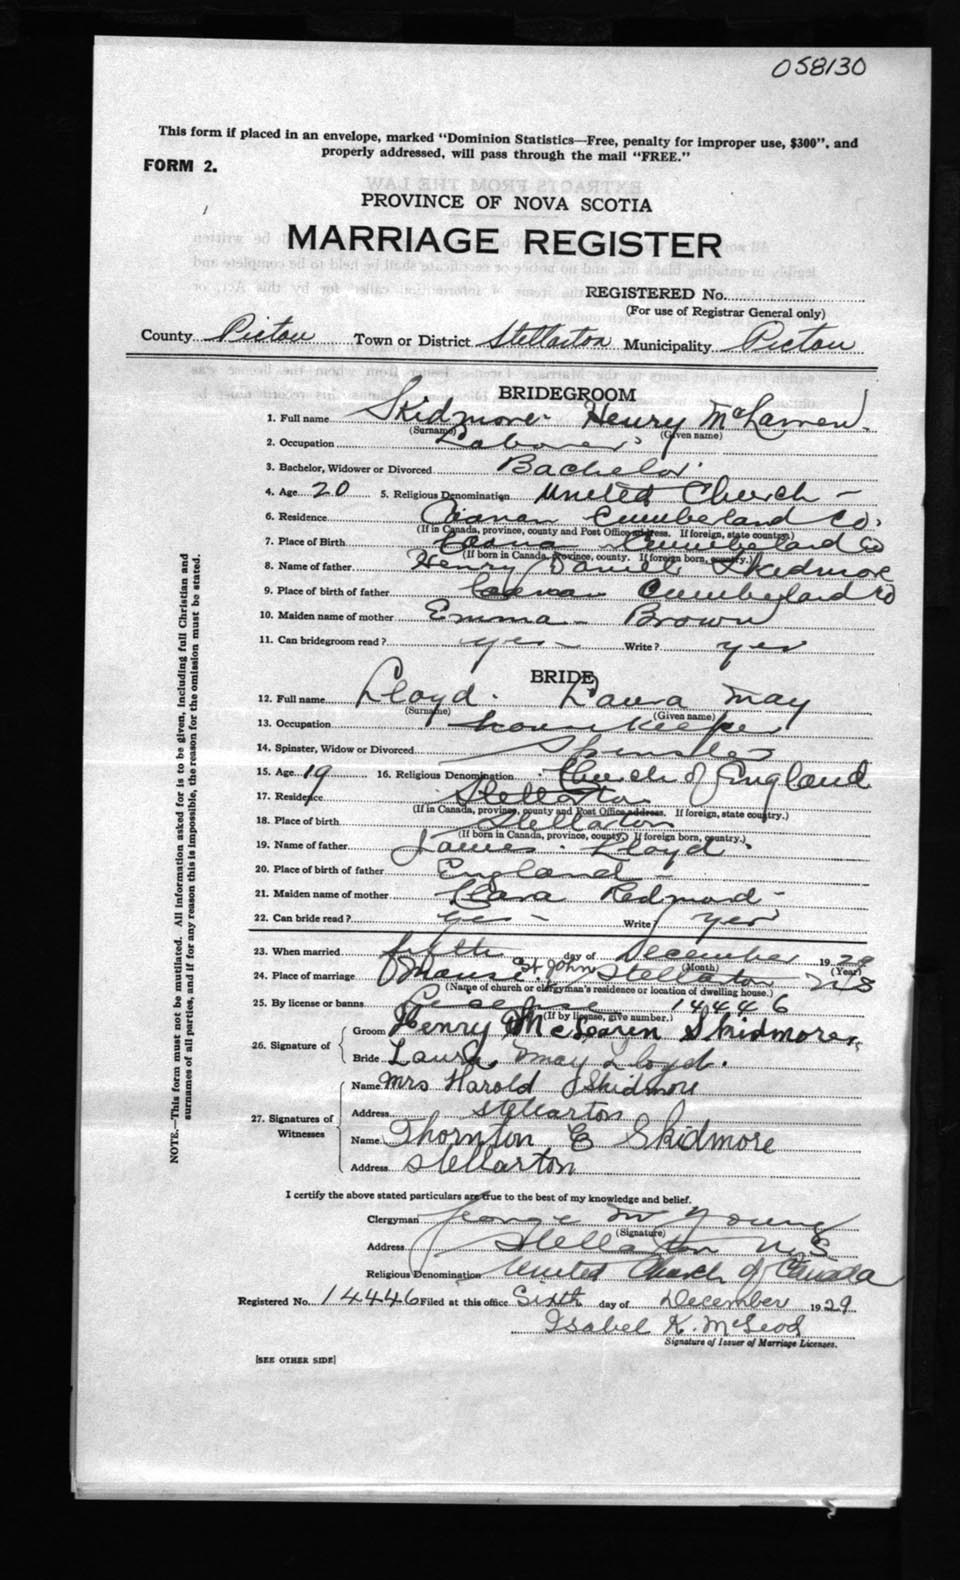 058130
This form if placed in an envelope, marked "Dominion Statistics—Free, penalty for improper use, $300", and
properly addressed, will pass through the mail "FREE."
FORM 2.
PROVINCE OF NOVA SCOTIA
MARRIAGE REGISTER
REGISTERED No.
(For use of Registrar General only)
County Pictou Town or District Stellarton Municipality Pictou
BRIDEGROOM
1. Full name Skidmore Henry McLaren
(Surname) (Given name)
2. Occupation Laborer
3. Bachelor, Widower or Divorced Bachelor
4. Age 20 5. Religious Denomination United Church
6. Residence Cumberland Co.
(If in Canada, province, county and Post Office address. If foreign, state country.)
7. Place of Birth Cumberland Co
(If born in Canada, province, county. If foreign born, country.)
8. Name of father Henry Daniel Skidmore
9. Place of birth of father Cumberland Co
10. Maiden name of mother Emma Brown
11. Can bridegroom read? yes Write? yes
BRIDE
12. Full name Lloyd Laura May
(Surname) (Given name)
13. Occupation housekeeper
14. Spinster, Widow or Divorced Spinster
15. Age 19 16. Religious Denomination Church of England
17. Residence Stellarton
(If in Canada, province, county and Post Office address. If foreign, state country.)
18. Place of birth Stellarton
(If born in Canada, province, county. If foreign born, country.)
19. Name of father James Lloyd
20. Place of birth of father England
21. Maiden name of mother Clara Redmond
22. Can bride read? yes Write? yes
23. When married fifth day of December 1929
(Month) (Year)
24. Place of marriage Manse St John Stellarton NS
(Name of church or clergyman's residence or location of dwelling house.)
25. By license or banns License 14446
(If by license, give number.)
26. Signature of
Groom Henry McLaren Skidmore
Bride Laura May Lloyd.
27. Signatures of Witnesses
Name Mrs Harold J Skidmore
Address Stellarton
Name Thornton E Skidmore
Address Stellarton
I certify the above stated particulars are true to the best of my knowledge and belief.
Clergyman George W Young
(Signature)
Address Stellarton N.S
Religious Denomination United Church of Canada
Registered No. 14446 Filed at this office Sixth day of December 1929
Isabel K. McLeod
Signature of Issuer of Marriage Licenses.
[SEE OTHER SIDE]
NOTE.—This form must not be mutilated. All information asked for is to be given, including full Christian and
surnames of all parties, and if for any reason this is impossible, the reason for the omission must be stated.